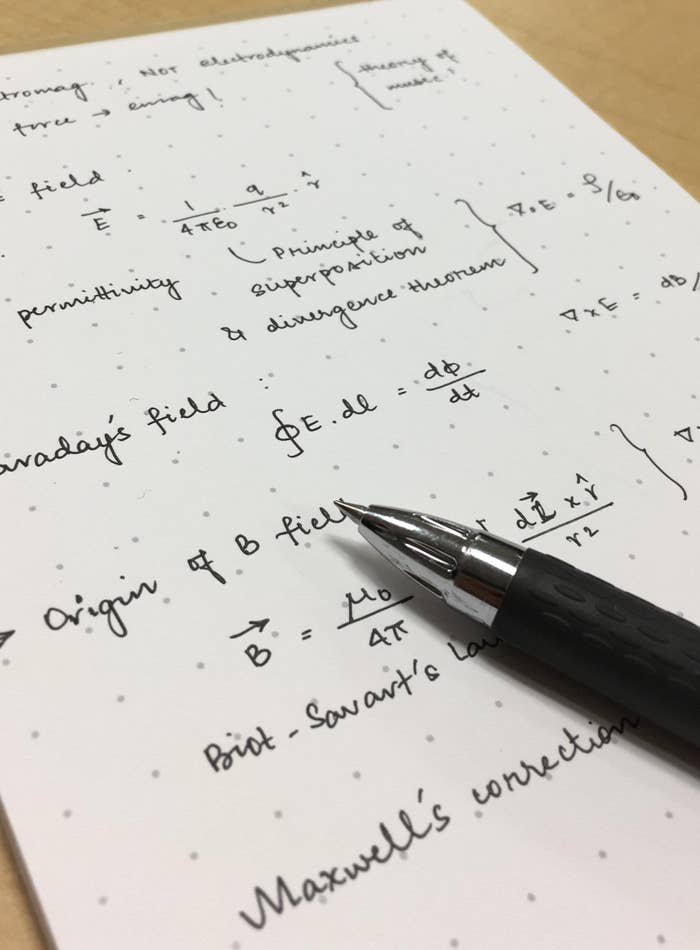 tromag., NOT electrodynamics
force → emag! { theory of
music!
field
E⃗ = 1/4πε₀ q/r² r̂
permittivity
Principle of
superposition
& divergence theorem } ∇.E = ρ/ε₀
∇×E = dB/
araday's field : ∮E.dl = dφ/dt
Origin of B fiel
B⃗ = μ₀/4π dI⃗ × r̂/r² } ∇.
Biot-Savart's Law
Maxwell's correction